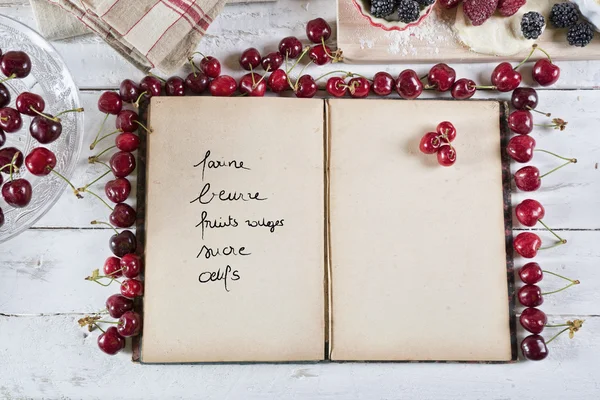 farine
beurre
fruits rouges
sucre
œufs